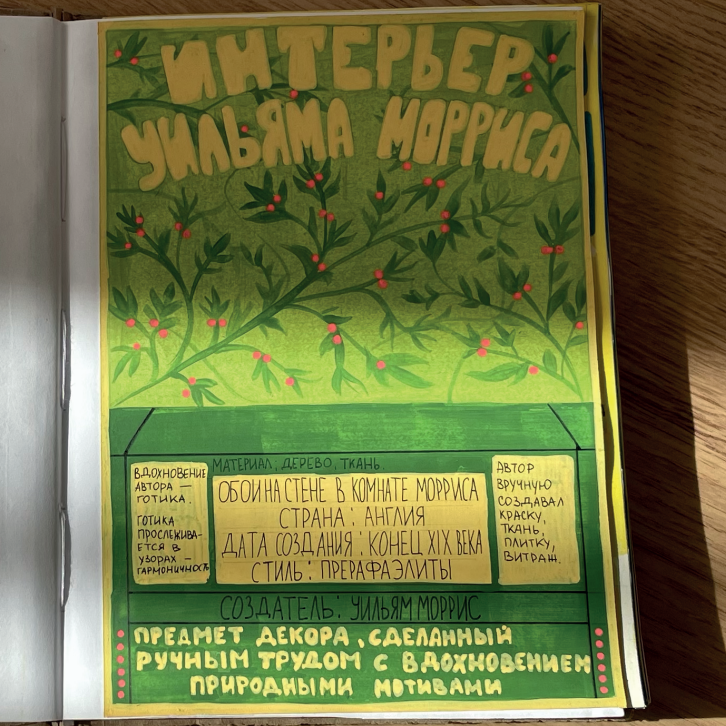 ИНТЕРЬЕР
УИЛЬЯМА МОРРИСА
ВДОХНОВЕНИЕ
АВТОРА —
ГОТИКА.
ГОТИКА
ПРОСЛЕЖИВА-
ЕТСЯ В
УЗОРАХ —
ГАРМОНИЧНОСТЬ
МАТЕРИАЛ, ДЕРЕВО, ТКАНЬ.
ОБОИ НА СТЕНЕ В КОМНАТЕ МОРРИСА
СТРАНА: АНГЛИЯ
ДАТА СОЗДАНИЯ: КОНЕЦ XIX ВЕКА
СТИЛЬ: ПРЕРАФАЭЛИТЫ
АВТОР
ВРУЧНУЮ
СОЗДАВАЛ
КРАСКУ,
ТКАНЬ,
ПЛИТКУ,
ВИТРАЖ.
СОЗДАТЕЛЬ: УИЛЬЯМ МОРРИС
ПРЕДМЕТ ДЕКОРА, СДЕЛАННЫЙ
РУЧНЫМ ТРУДОМ С ВДОХНОВЕНИЕМ
ПРИРОДНЫМИ МОТИВАМИ